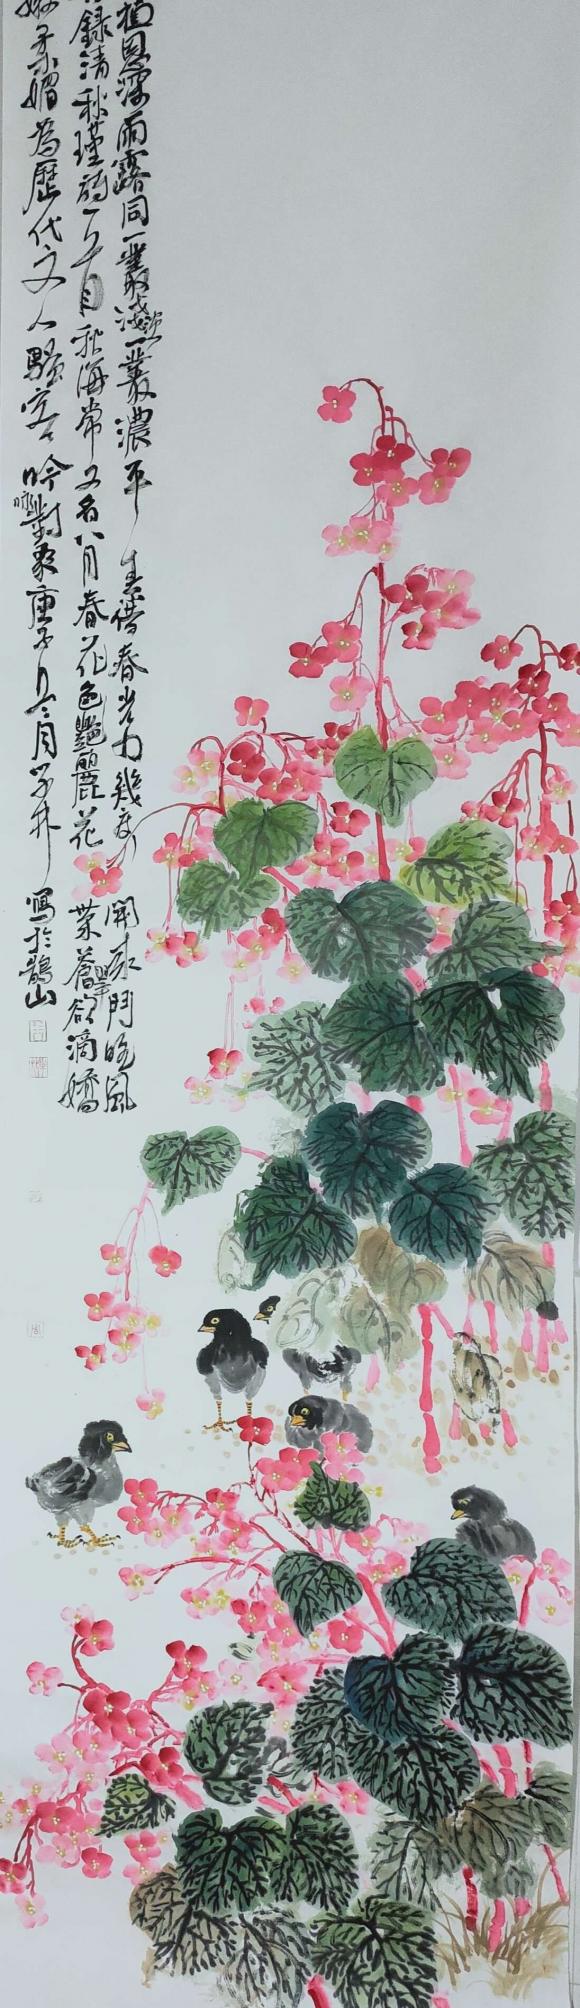 植恩深雨露同一叢淺淡一叢濃平生借春光力幾度開來鬥晚風
錄清秋瑾詩一首秋海棠又名八月春花色艷麗花葉蒼翠欲滴嬌
柔媚為歷代文人騷客吟詠對象庚子冬月寫於鵲山